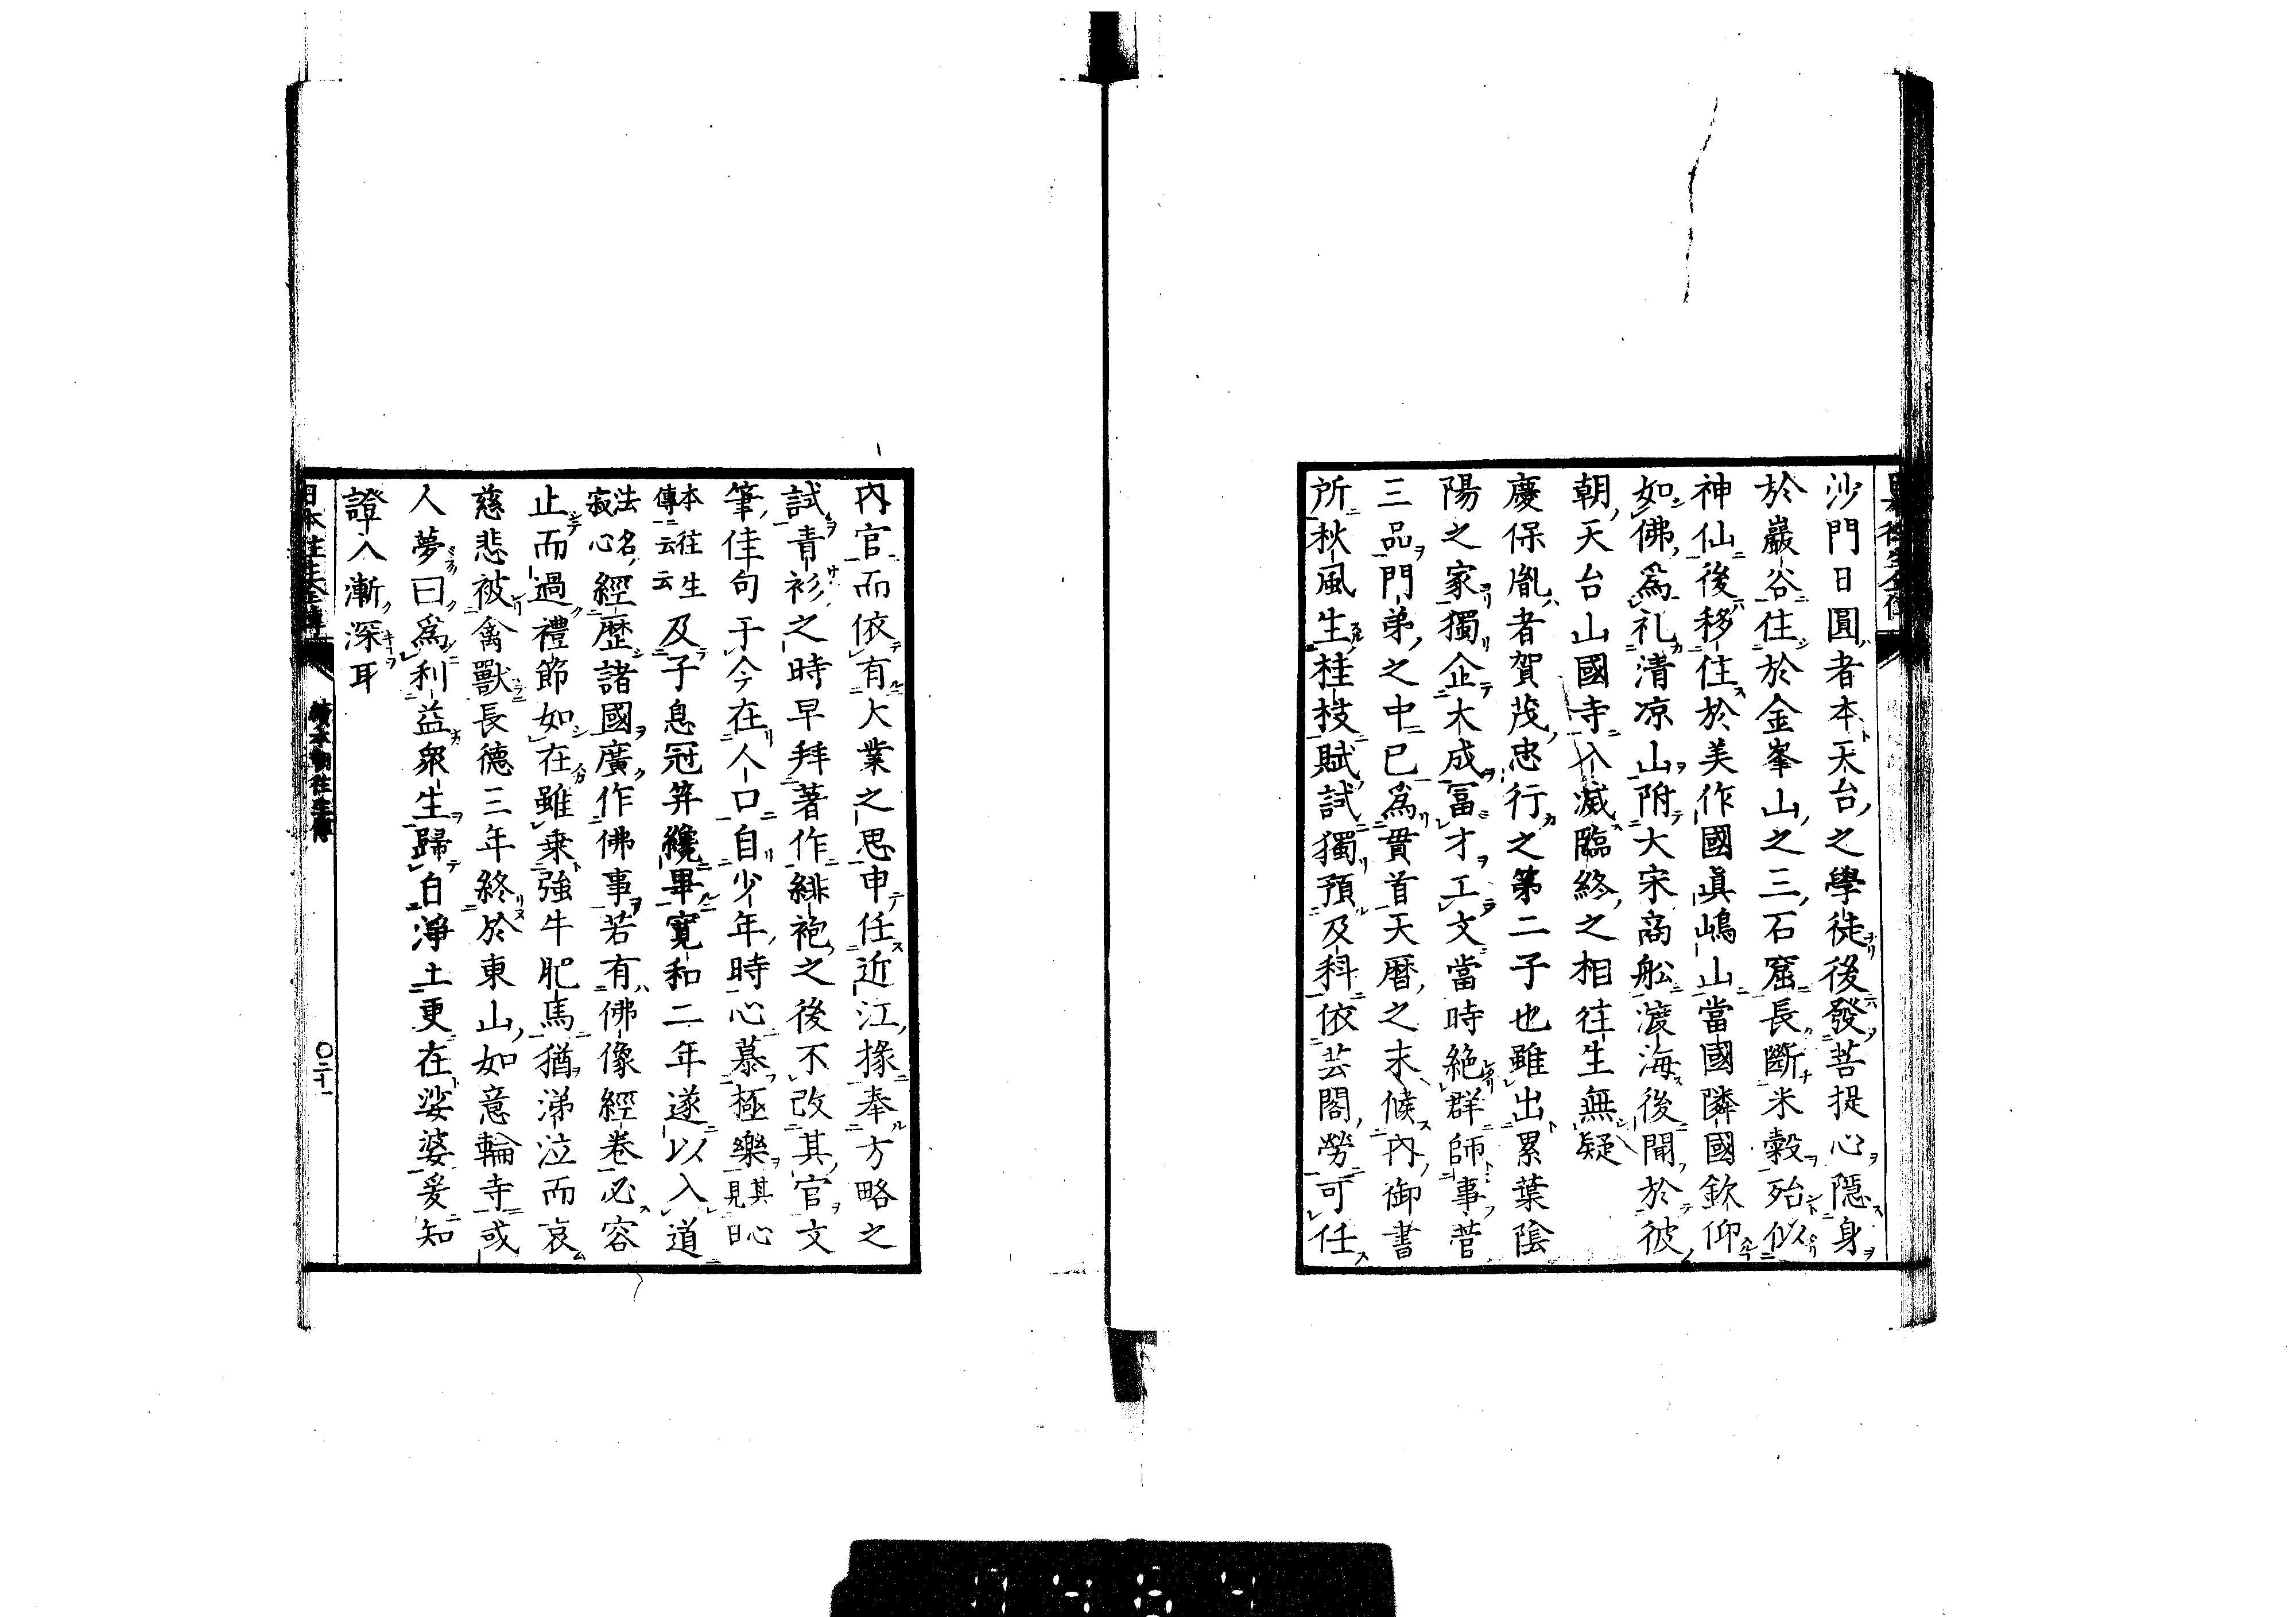 沙門日圓者本天台之學徒後發菩提心隱身
於巖谷住於金峯山之三石窟長斷米穀殆似
神仙後移住於美作國眞嶋山當國隣國欽仰
如佛爲礼清凉山附大宋商舩渡海後聞於彼
朝天台山國寺入滅臨終之相往生無疑
慶保胤者賀茂忠行之第二子也雖出累葉陰
陽之家獨企大成冨才工文當時絶群師事菅
三品門弟之中已爲貫首天暦之末候內御書
所秋風生桂枝賦試獨預及科依芸閣勞可任
內官而依有大業之思申任近江掾奉方略之
試青衫之時早拜著作緋袍之後不改其官文
筆佳句于今在人口自少年時心慕極樂其心見日
本往生傳云云及子息冠笄纔畢寛和二年遂以入道
法名寂心經歴諸國廣作佛事若有佛像經巻必容
止而過禮節如在雖乗強牛肥馬猶涕泣而哀
慈悲被禽獸長德三年終於東山如意輪寺或
人夢曰爲利益衆生歸自淨土更在娑婆爰知
證入漸深耳
日本往生全傳
續本朝往生傳
〇二十一